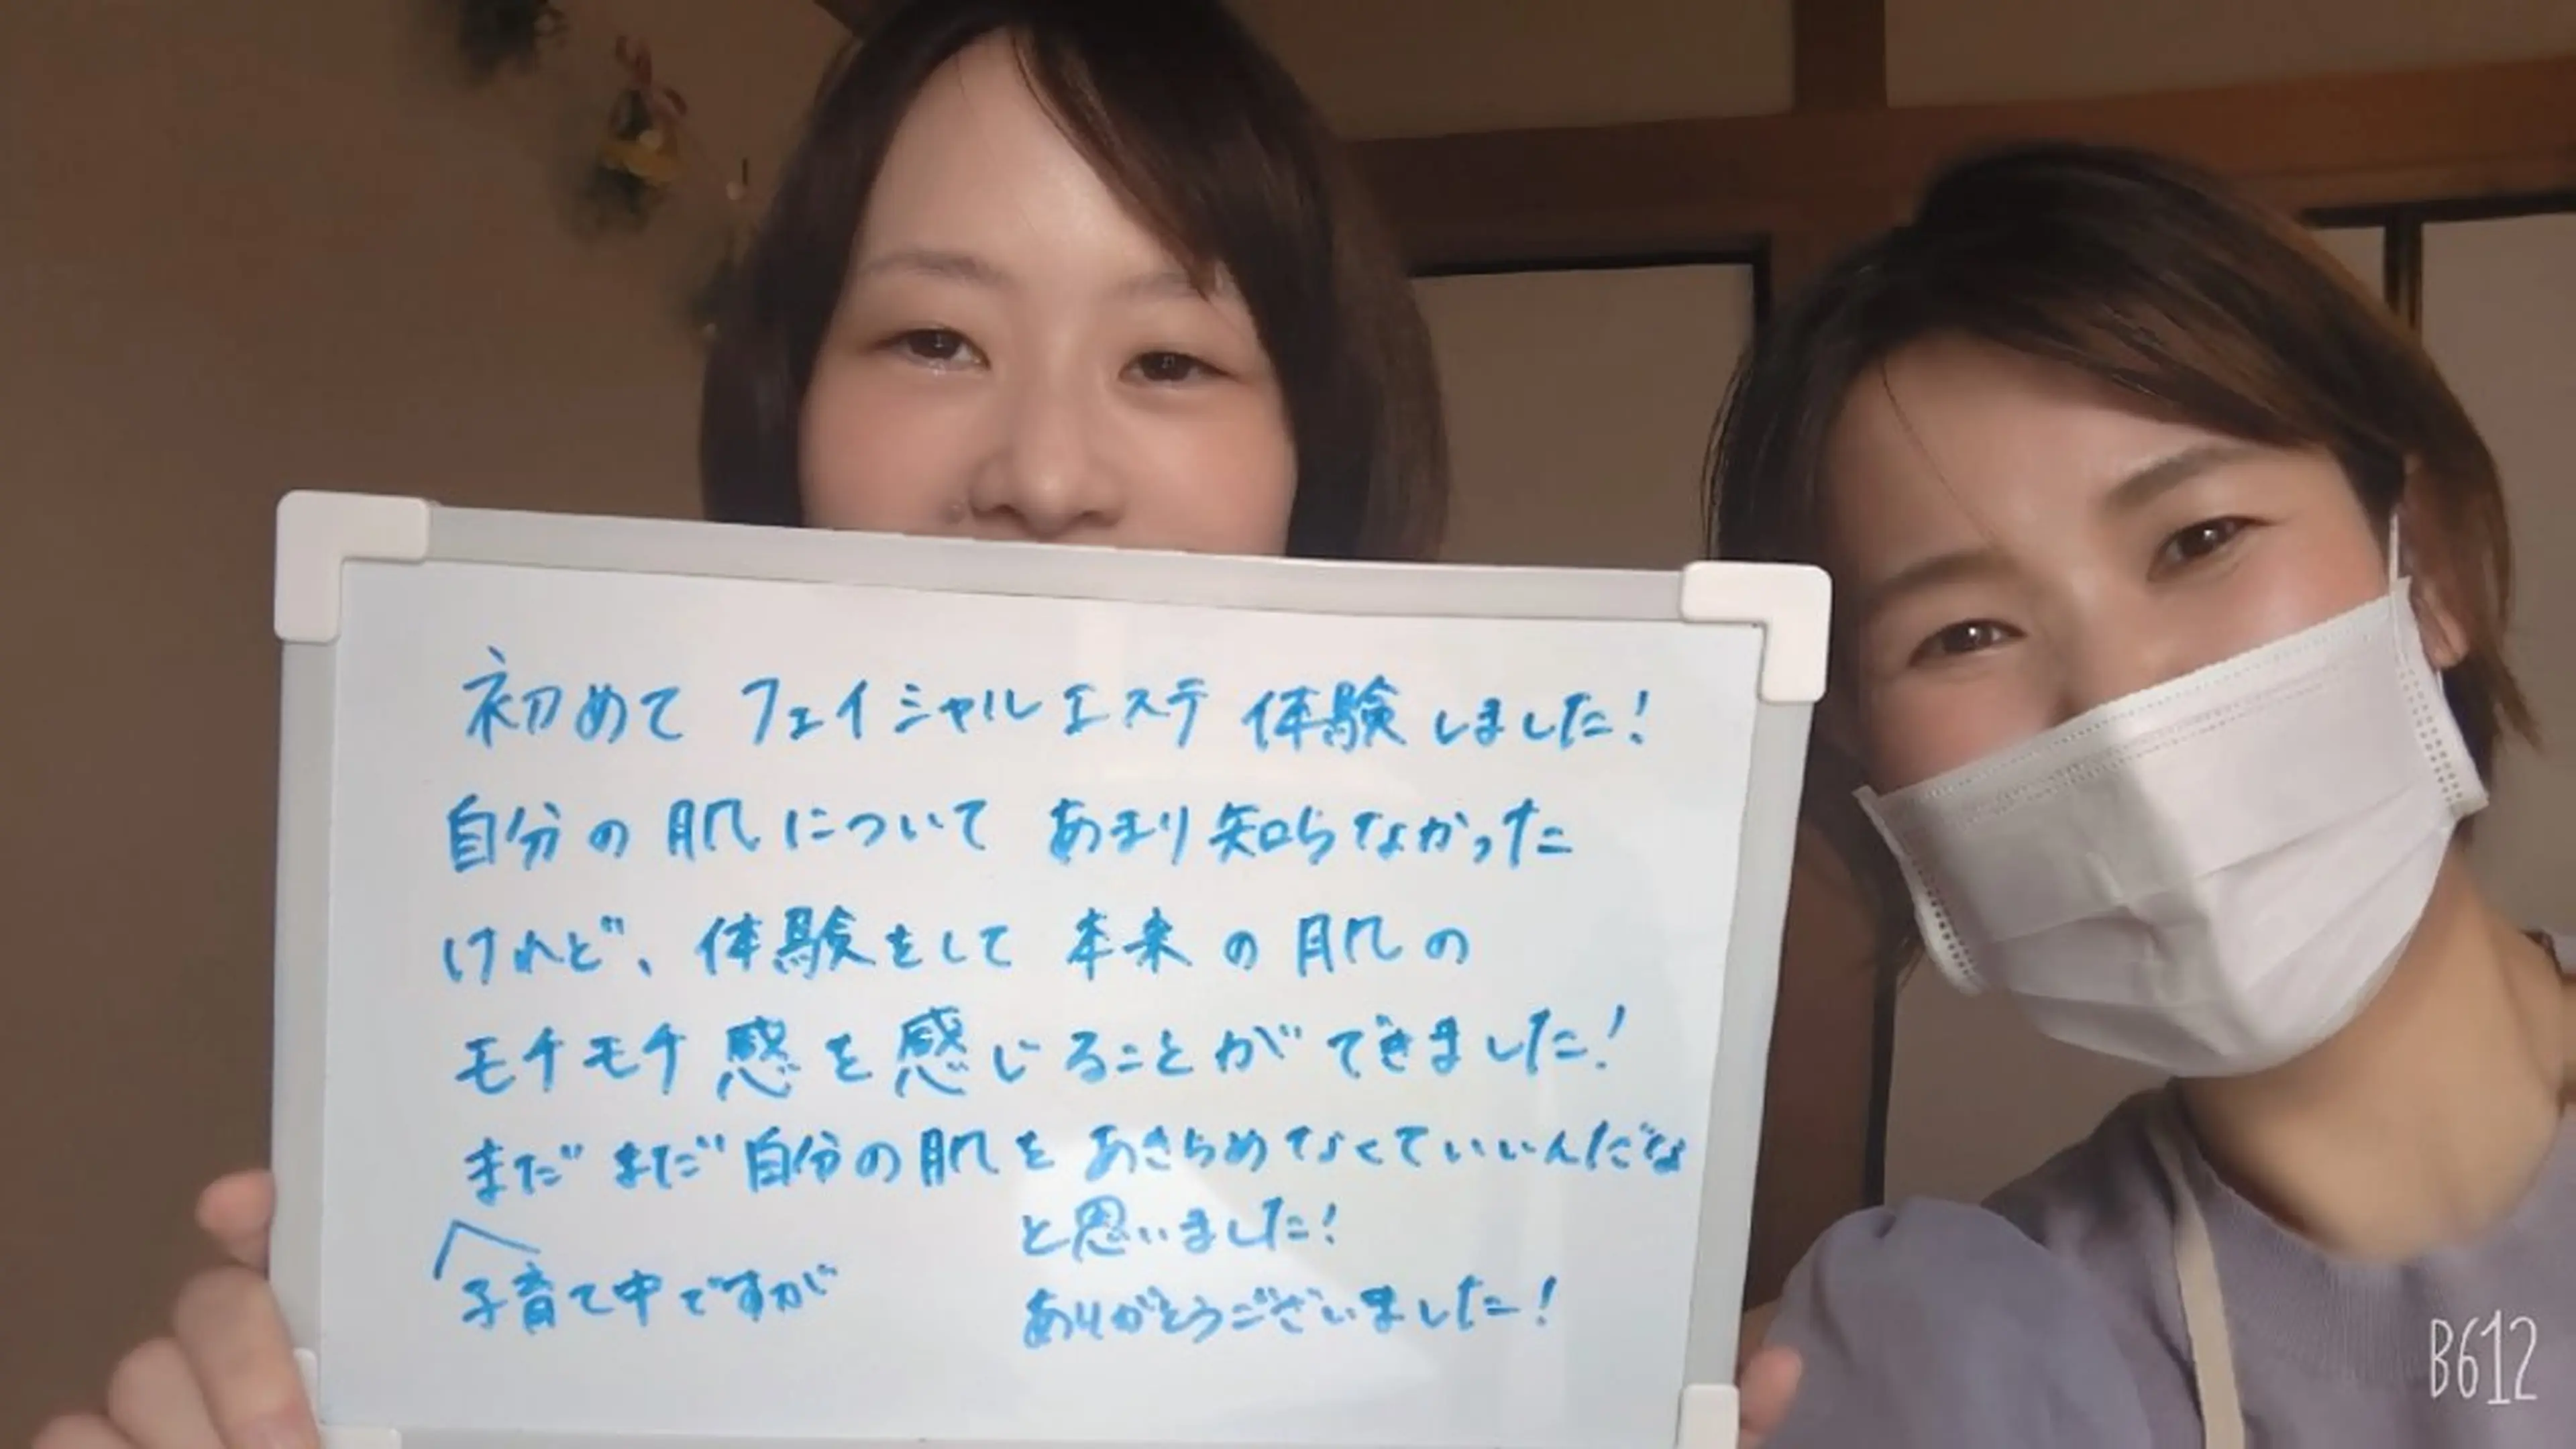 初めて フェイシャルエステ 体験しました!
自分の肌について あまり知らなかった
けれど、体験をして 本来の肌の
モチモチ感を感じることができました!
まだまだ自分の肌をあきらめなくていいんだな
と思いました!
子育て中ですが
ありがとうございました!
B612